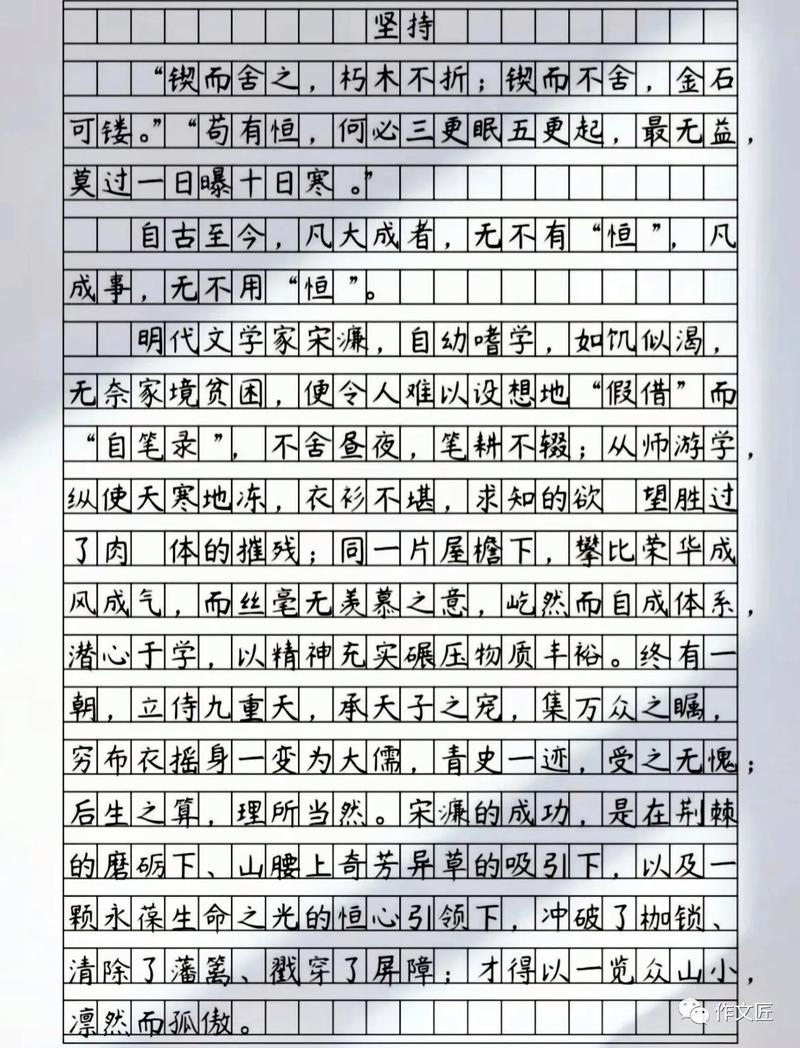 坚持
“锲而舍之，朽木不折；锲而不舍，金石
可镂。”“苟有恒，何必三更眠五更起，最无益，
莫过一日曝十日寒。”
自古至今，凡大成者，无不有“恒”，凡
成事，无不用“恒”。
明代文学家宋濂，自幼嗜学，如饥似渴，
无奈家境贫困，便令人难以设想地“假借”而
“自笔录”，不舍昼夜，笔耕不辍；从师游学，
纵使天寒地冻，衣衫不堪，求知的欲 望胜过
了肉 体的摧残；同一片屋檐下，攀比荣华成
风成气，而丝毫无羡慕之意，屹然而自成体系，
潜心于学，以精神充实碾压物质丰裕。终有一
朝，立侍九重天，承天子之宠，集万众之瞩，
穷布衣摇身一变为大儒，青史一迹，受之无愧；
后生之算，理所当然。宋濂的成功，是在荆棘
的磨砺下、山腰上奇芳异草的吸引下，以及一
颗永葆生命之光的恒心引领下，冲破了枷锁、
清除了藩篱、戳穿了屏障；才得以一览众山小，
凛然而孤傲。
作文匠